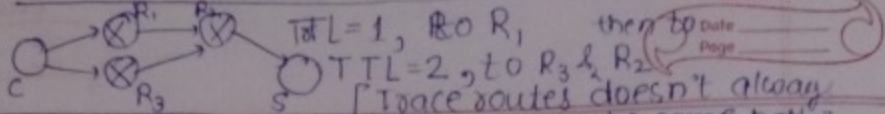 R1 R2 TTL=1, to R1 then to Date
C R3 S TTL=2, to R3 & R2 Page
[Trace routes doesn't alway